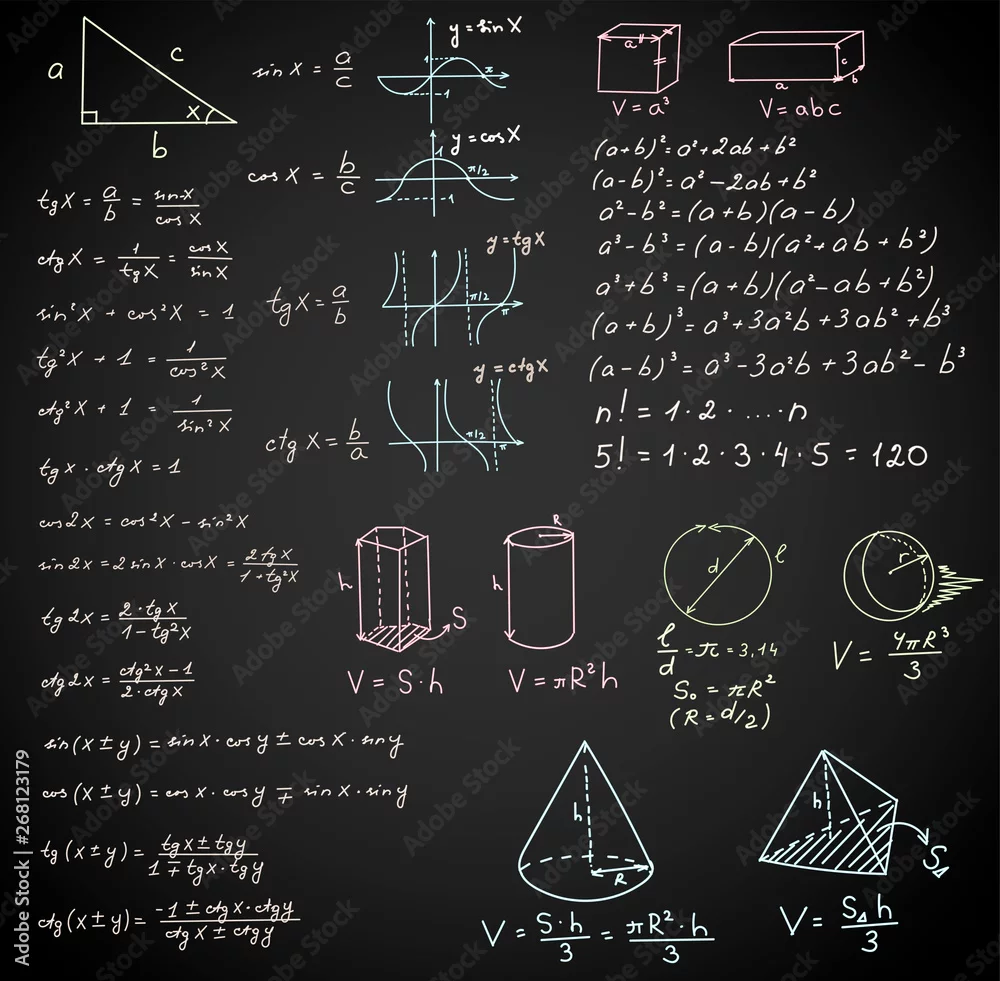 a
c
b
x
sin x = a/c
y = sin x
1
π
-1
cos x = b/c
y = cos x
1
π/2
-1
tg x = a/b = sin x/cos x
ctg x = 1/tg x = cos x/sin x
sin²x + cos²x = 1
tg²x + 1 = 1/cos²x
ctg²x + 1 = 1/sin²x
tg x · ctg x = 1
cos2x = cos²x - sin²x
sin2x = 2 sin x · cos x = 2 tg x/1+tg²x
tg2x = 2·tg x/1-tg²x
ctg2x = ctg²x-1/2·ctg x
sin(x±y) = sin x · cos y ± cos x · sin y
cos(x±y) = cos x · cos y ∓ sin x · sin y
tg(x±y) = tg x ± tg y/1 ∓ tg x · tg y
ctg(x±y) = -1 ± ctg x · ctg y/ctg x ± ctg y
tg x = a/b
y = tg x
π/2
π
ctg x = b/a
y = ctg x
π/2
π
a
V = a³
a
b
c
V = abc
(a+b)² = a² + 2ab + b²
(a-b)² = a² - 2ab + b²
a² - b² = (a+b)(a-b)
a³ - b³ = (a-b)(a² + ab + b²)
a³ + b³ = (a+b)(a² - ab + b²)
(a+b)³ = a³ + 3a²b + 3ab² + b³
(a-b)³ = a³ - 3a²b + 3ab² - b³
n! = 1·2·....·n
5! = 1·2·3·4·5 = 120
h
S
V = S·h
R
h
V = πR²h
d
l
l/d = π = 3,14
S₀ = πR²
(R = d/2)
r
V = 4πR³/3
h
R
V = S·h/3 = πR²·h/3
h
S⊿
V = S⊿h/3
Adobe Stock | #268123179
Adobe Stock